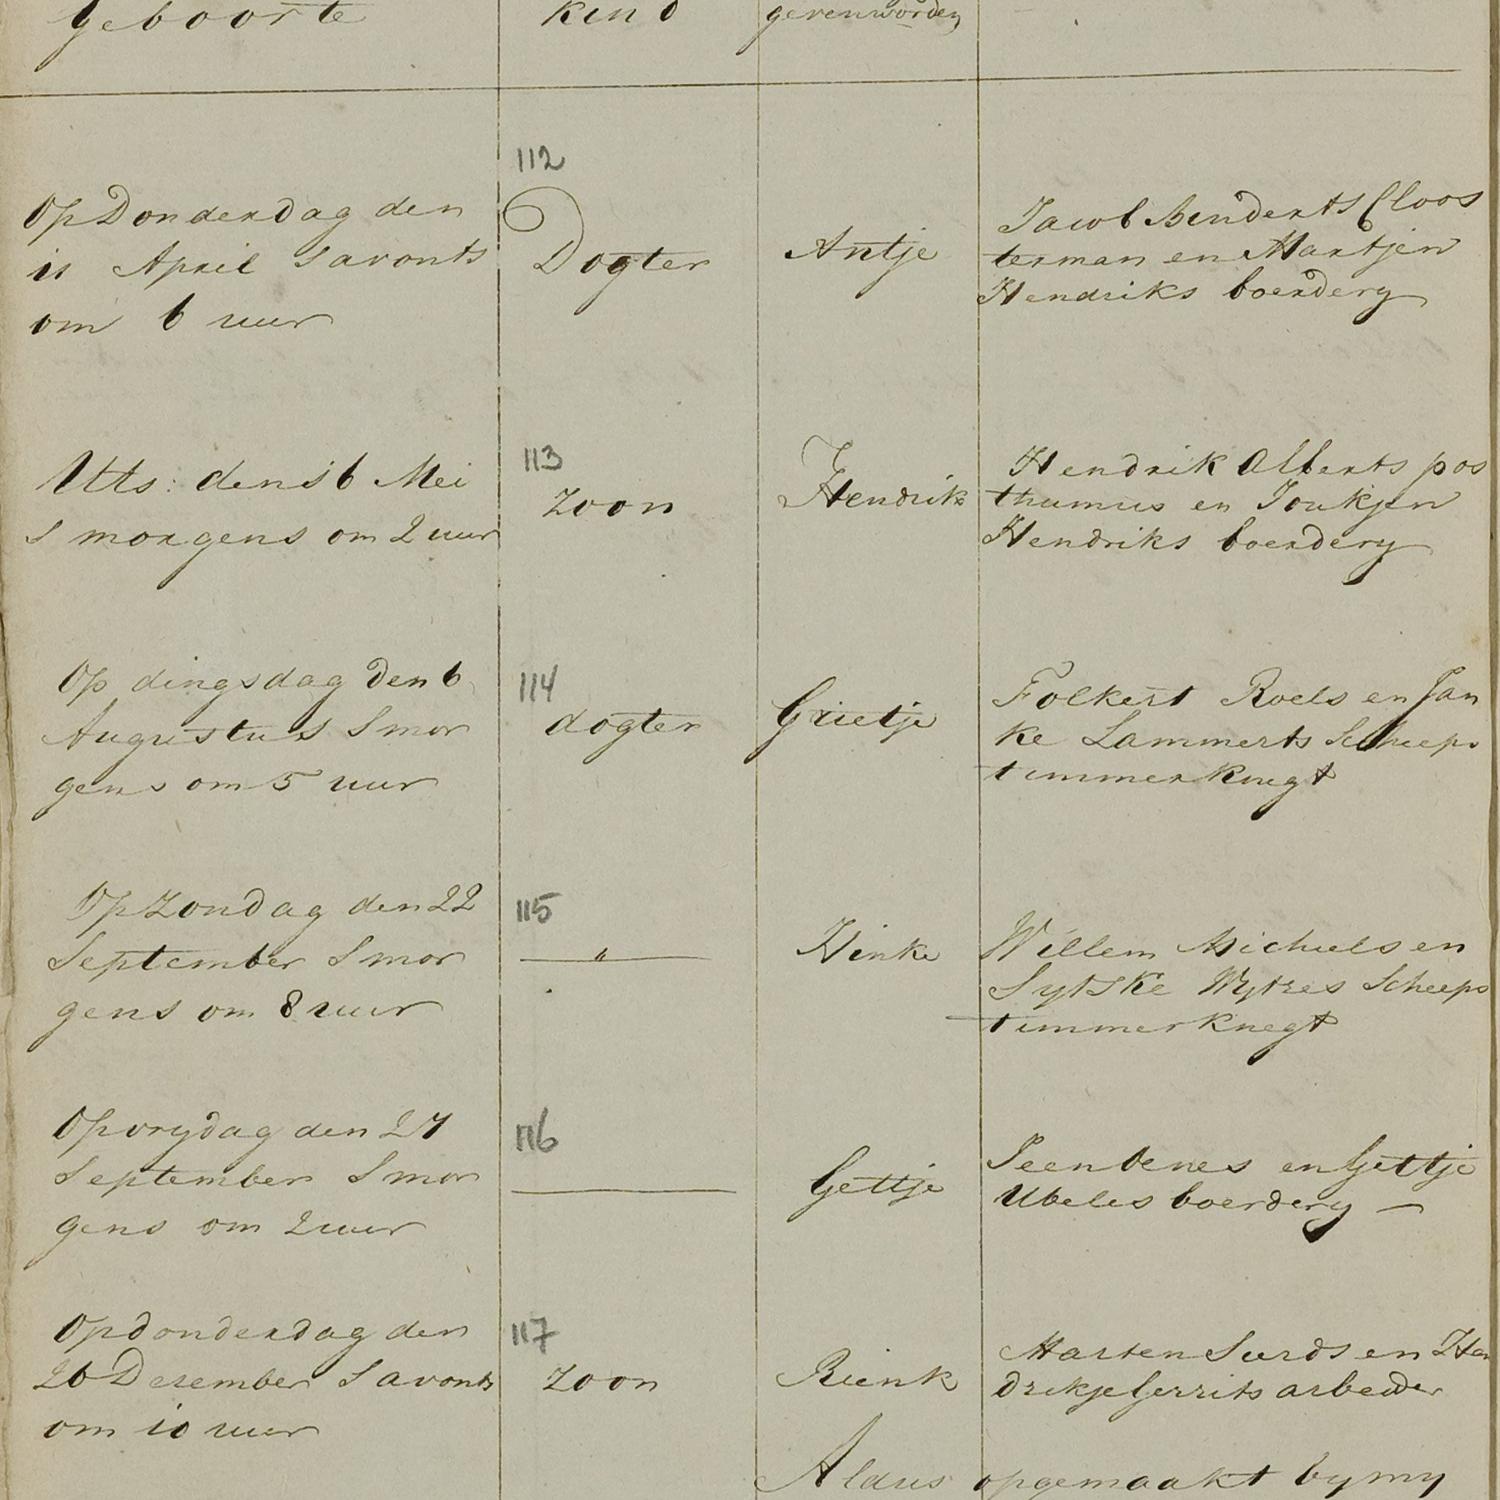 geboorte
kind
geven worden
112
Op Donderdag den
11 April s avonts
om 6 uur
Dogter
Antje
Jacob Benderts Cloos
terman en Martjen
Hendriks boerdery
113
Uts: den 16 Mei
s morgens om 2 uur
zoon
Hendrik
Hendrik Alberts pos
thumus en Joukjen
Hendriks boerdery
114
Op dingsdag den 6
Augustus s mor
gens om 5 uur
dogter
Grietje
Folkert Roels en Jan
ke Lammerts Scheeps
timmerknegt
115
Op Zondag den 22
September s mor
gens om 8 uur
"
Hinke
Willem Michiels en
Sytske Wytzes Scheeps
timmerknegt
116
Op vrydag den 27
September s mor
gens om 2 uur
Gettje
Peenbenes en Gettje
Ubeles boerdery —
117
Op donderdag den
26 December s avonts
om 10 uur
zoon
Rienk
Marten Surds en Hen
drikje Gerrits arbeider
Aldus opgemaakt by my